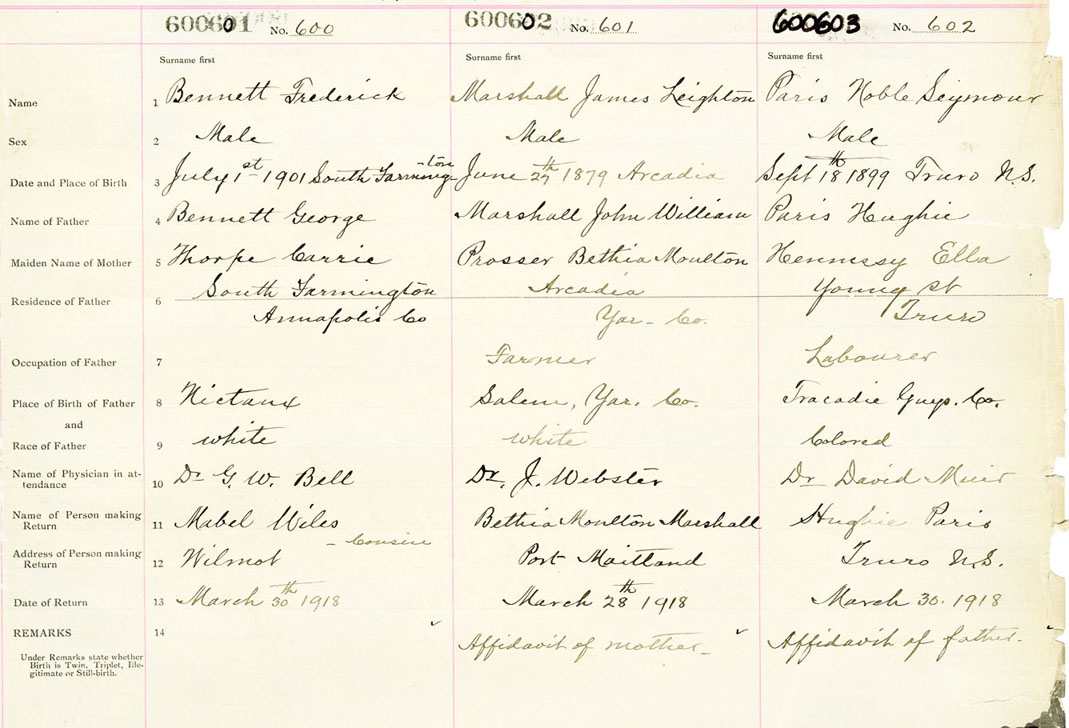 600601 No. 600 600602 No. 601 600603 No. 602
Surname first Surname first Surname first
Name 1 Bennett Frederick Marshall James Leighton Paris Noble Seymour
Sex 2 Male Male Male
Date and Place of Birth 3 July 1st 1901 South Farmington June 27th 1879 Arcadia Sept 18th 1899 Truro N.S.
Name of Father 4 Bennett George Marshall John William Paris Hughie
Maiden Name of Mother 5 Thorpe Carrie Prosser Bethia Moulton Hennessy Ella
Residence of Father 6 South Farmington Arcadia Young St
Annapolis Co Yar- Co. Truro
Occupation of Father 7 Farmer Labourer
Place of Birth of Father 8 Nictaux Salem, Yar. Co. Tracadie Guys. Co.
and
Race of Father 9 white white Colored
Name of Physician in at-
tendance 10 Dr G. W. Bell Dr. J. Webster Dr David Muir
Name of Person making
Return 11 Mabel Wiles Bethia Moulton Marshall Hughie Paris
- Cousin
Address of Person making
Return 12 Wilmot Port Maitland Truro N.S.
Date of Return 13 March 30th 1918 March 28th 1918 March 30. 1918
REMARKS 14 Affidavit of mother- Affidavit of father-
Under Remarks state whether
Birth is Twin, Triplet, Ille-
gitimate or Still-birth.